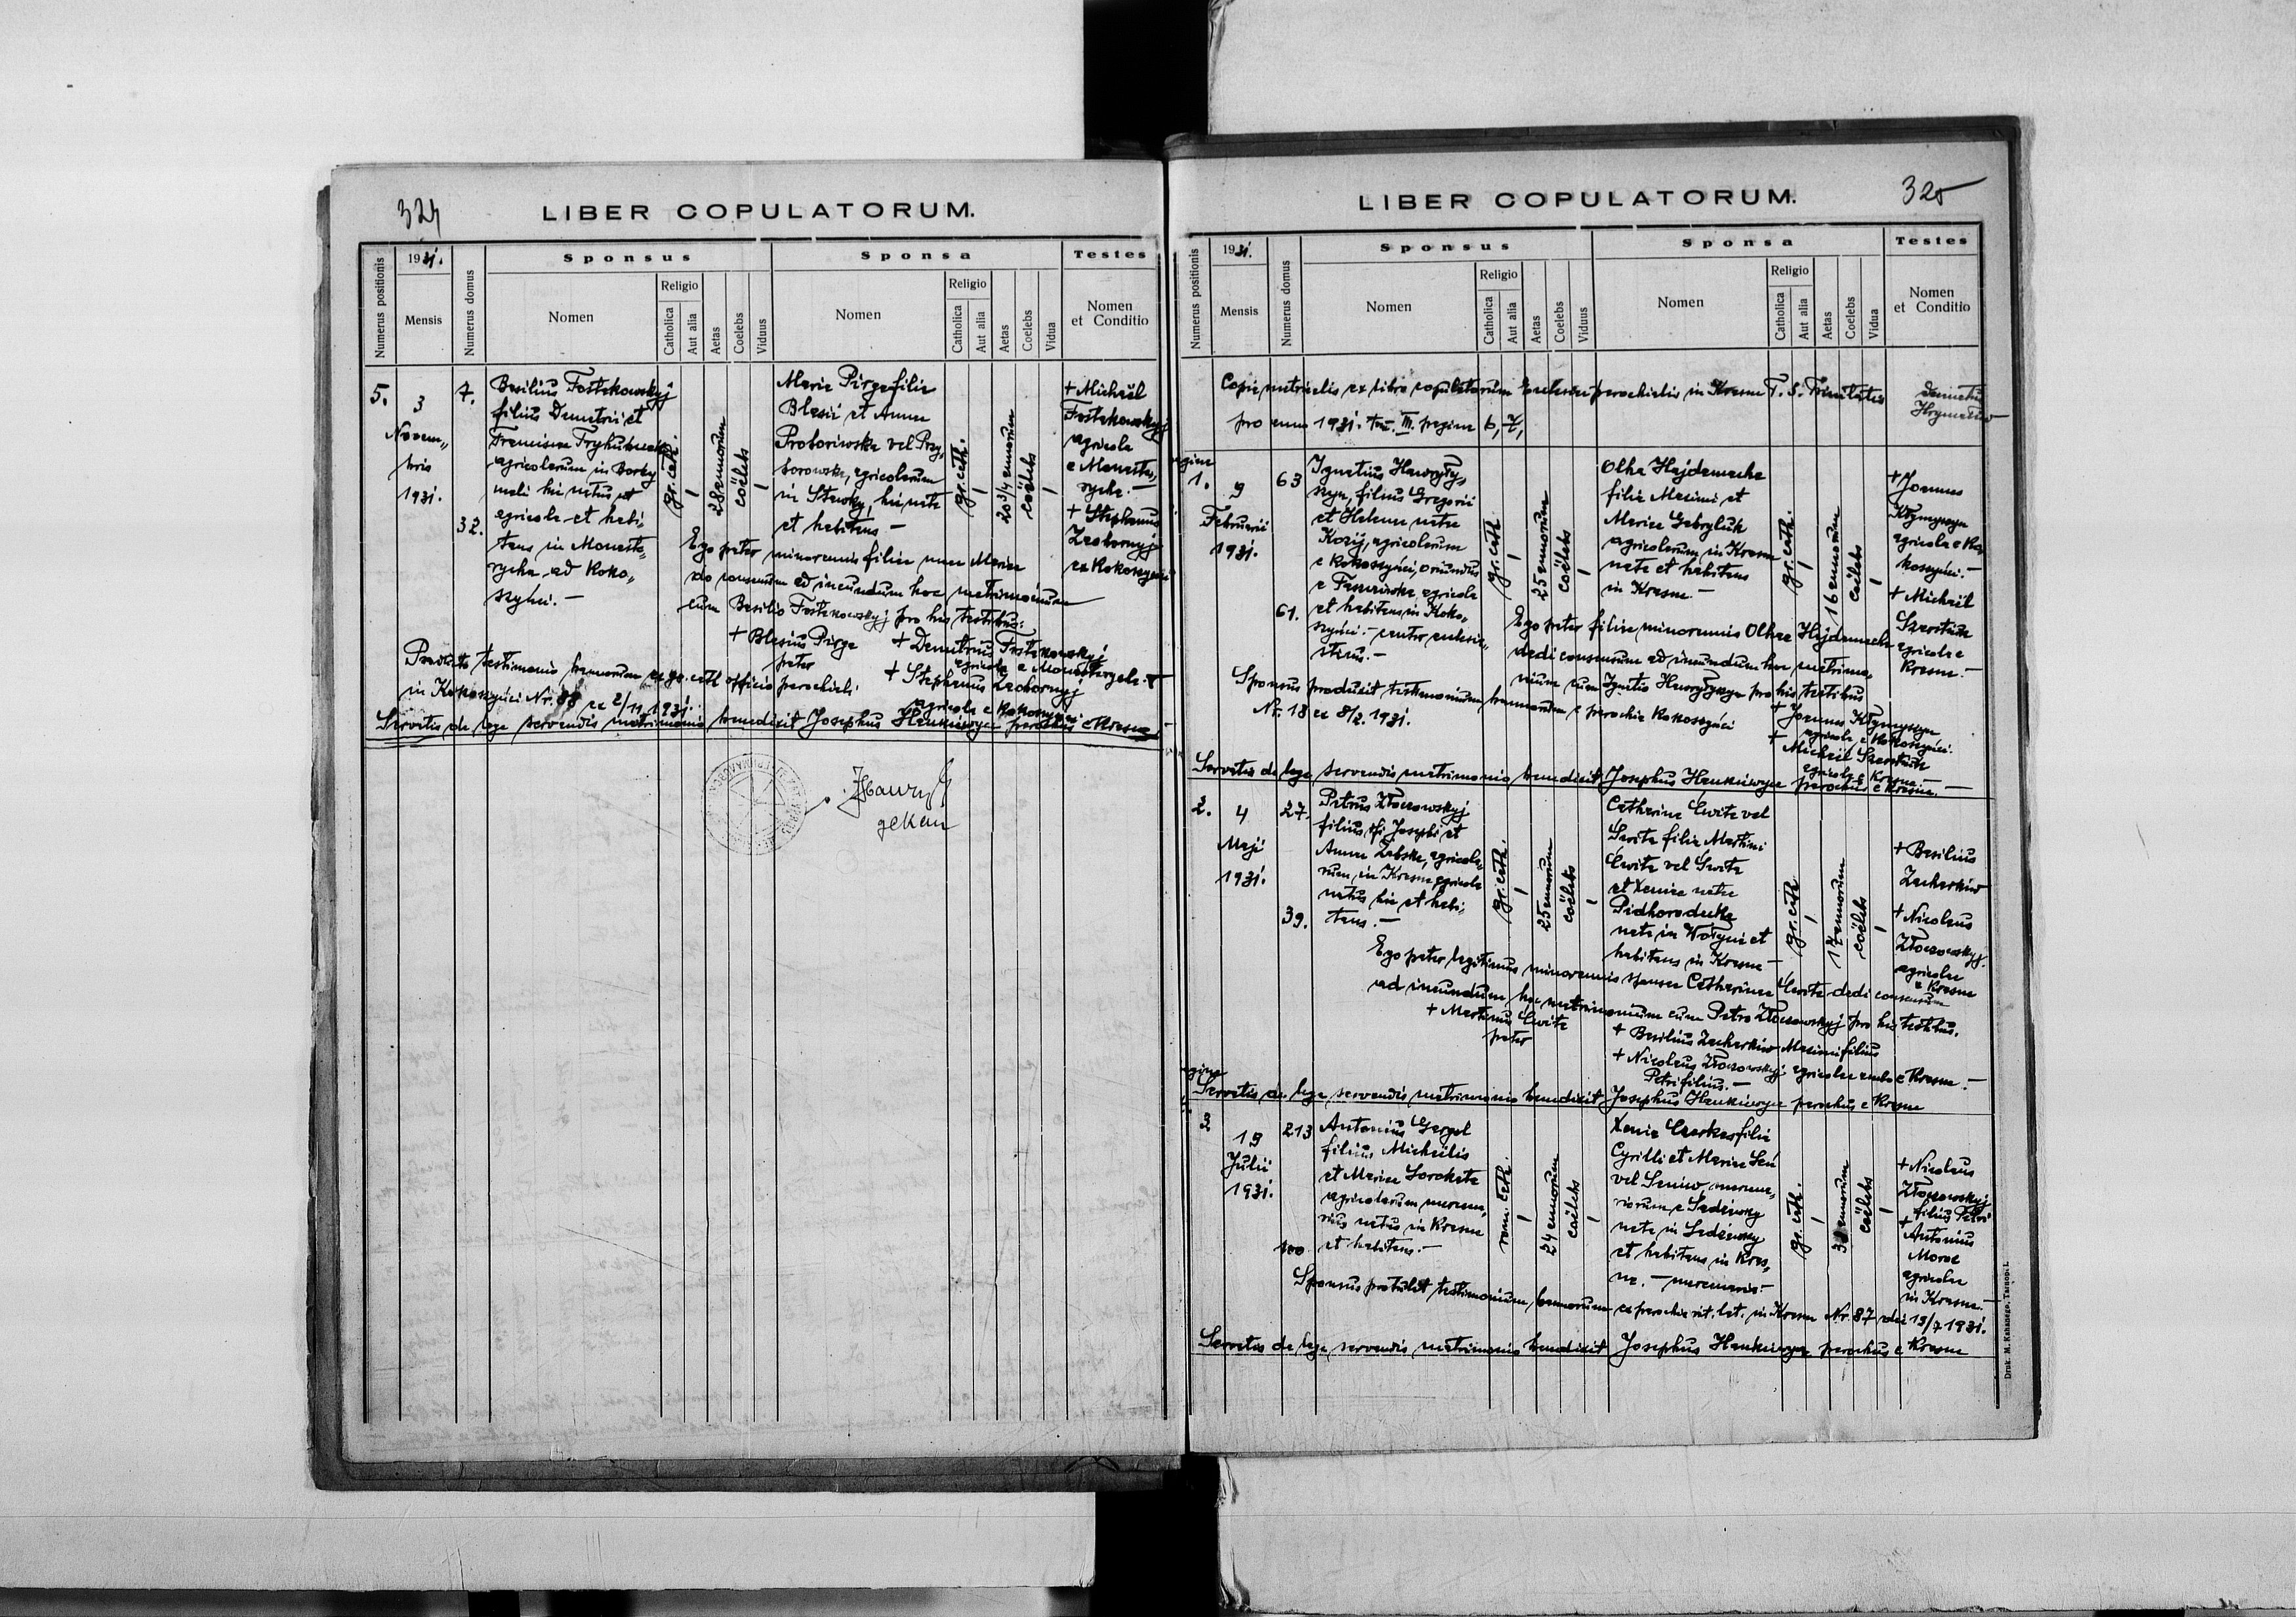 324
LIBER COPULATORUM.
Numerus positionis
1931.
Mensis
Numerus domus
Sponsus
Nomen
Religio
Catholica
Aut alia
Aetas
Coelebs
Viduus
Sponsa
Nomen
Religio
Catholica
Aut alia
Aetas
Coelebs
Vidua
Testes
Nomen
et Conditio
5.
3
Novem„
bris
1931.
7.
32.
Basilius Fostakowskyj
filius Demetrii et
Francisca
agricolarum in Borky
mali hic natus et
agricola et habi„
tans in Monasta„
rycha ad Koko„
szyńci.—
gr. cath.
28 annorum
coëlebs
Maria Pirga filia
Blasii et Annae
Protoriwska vel Prz„
torowska, agricolarum
in Stawky, hic nata
et habitans —
gr. cath.
20 3/4 annorum
coëlebs
+ Michaël
Fostakowskyj
agricola
e Monasta„
rycha.—
+ Stephanus
Zazbornyj
ex Kokoszyńci
Ego pater minorennis filiae meae Mariae
do consensum ad ineundum hoc matrimonium
cum Basilio Fostakowskyj pro his testibus:
+ Blasius Pirga
pater
+ Demetrius Fostakowskyj
agricola e Monastarycha
+ Stephanus Zazbornyj
agricola e Kokoszyńci
testimonio bannorum ex gr. cath. officio parochiali
in Kokoszyńci Nr. 88 ex 2/11 1931.
Servatis de lege servandis matrimonio benedixit Josephus Hankiewycz parochus e Krasne
dekan
325
LIBER COPULATORUM.
Numerus positionis
1931.
Mensis
Numerus domus
Sponsus
Nomen
Religio
Catholica
Aut alia
Aetas
Coelebs
Viduus
Sponsa
Nomen
Religio
Catholica
Aut alia
Aetas
Coelebs
Vidua
Testes
Nomen
et Conditio
Copia matricalis ex libro copulatorum Ecclesiae parochialis in Krasne T. S. Trinitatis
pro anno 1931. Tom. III. pagina 6, 7,
pagina
1.
9
Februarii
1931.
63
61.
Ignatius Hawryły„
szyn, filius Gregorii
et Helenae natae
Kozij, agricolarum
e Kokoszyńci, oriundus
e agricola
et habitans in Koko„
szyńci.— cantor eccleiae
gr. cath.
25 annorum
coëlebs
Olha Hajdamacha
filia Maximi et
Mariae Gabryluk
agricolarum in Krasne
nata et habitans
in Krasne —
gr. cath.
16 annorum
coëlebs
+ Joannes
Kłymyszyn
agricola e Ko„
koszyńci.—
+ Michaël
Szostak
agricola e
Krasne.—
Ego pater filiae minorennis Olhae Hajdamacha
dedi consensum ad ineundum hoc matrimo„
nium cum Ignatio Hawryłyszyn pro his testibus
+ Joannes Kłymyszyn
agricola e Kokoszyńci.
+ Michaël Szostak
agricola e Krasne.—
Sponsus produxit testimonium bannorum e parochia Kokoszyńci
Nr. 18 ex 8/2. 1931.
Servatis de lege servandis matrimonio benedixit Josephus Hankiewycz parochus e Krasne.—
2.
4
Maji
1931.
27.
39.
Petrus Złoczowskyj
filius Josephi et
Annae Żabska, agricola„
rum, in Krasne agricola
natus hic et habi„
tans.—
gr. cath.
25 annorum
coëlebs
Catharina Cwita vel
Gwita filia Martini
Cwita vel Gwita
et Xeniae natae
Pidhorodecka
nata in Wołyni et
habitans in Krasne —
gr. cath.
17 annorum
coëlebs
+ Basilius
Zacharkiw
+ Nicolaus
Złoczowskyj.
agricolae
e Krasne
Ego pater legitimus minorennis sponsae Catharinae Cwita dedi consensum
ad ineundum hoc matrimonium cum Petro Złoczowskyj pro his testibus.
+ Martinus Cwita
pater
+ Basilius Zacharkiw Maximi filius
+ Nicolaus Złoczowskyj agricolae ambo e Krasne.—
Petri filius.—
pagina
Servatis de lege servandis matrimonio benedixit Josephus Hankiewycz parochus e Krasne
3
19
Julii
1931.
213
100
Antonius Gergel
filius Michaëlis
et Mariae Sorokata
agricolarum mercena„
rius natus in Krasne
et habitans.—
rom. cath.
24 annorum
coëlebs
Xenia Czerkas filia
Cyrilli et Mariae Seń
vel Seniw mercena„
riorum e Sadżiwky
nata in Sadżiwky
et habitans in Kras„
ne. — mercenaria —
gr. cath.
annorum
coëlebs
+ Nicolaus
Złoczowskyj
filius Petri
+
Antonius
Moroz
agricolae
in Krasne.—
Sponsus protulit testimonium bannorum ex parochia rit. lat. in Krasne Nr. 87 dei 19/7 1931.
Servatis de lege servandis matrimonio benedixit Josephus Hankiewycz parochus e Krasne
Druk. M. Kahanego, Tarnopol.